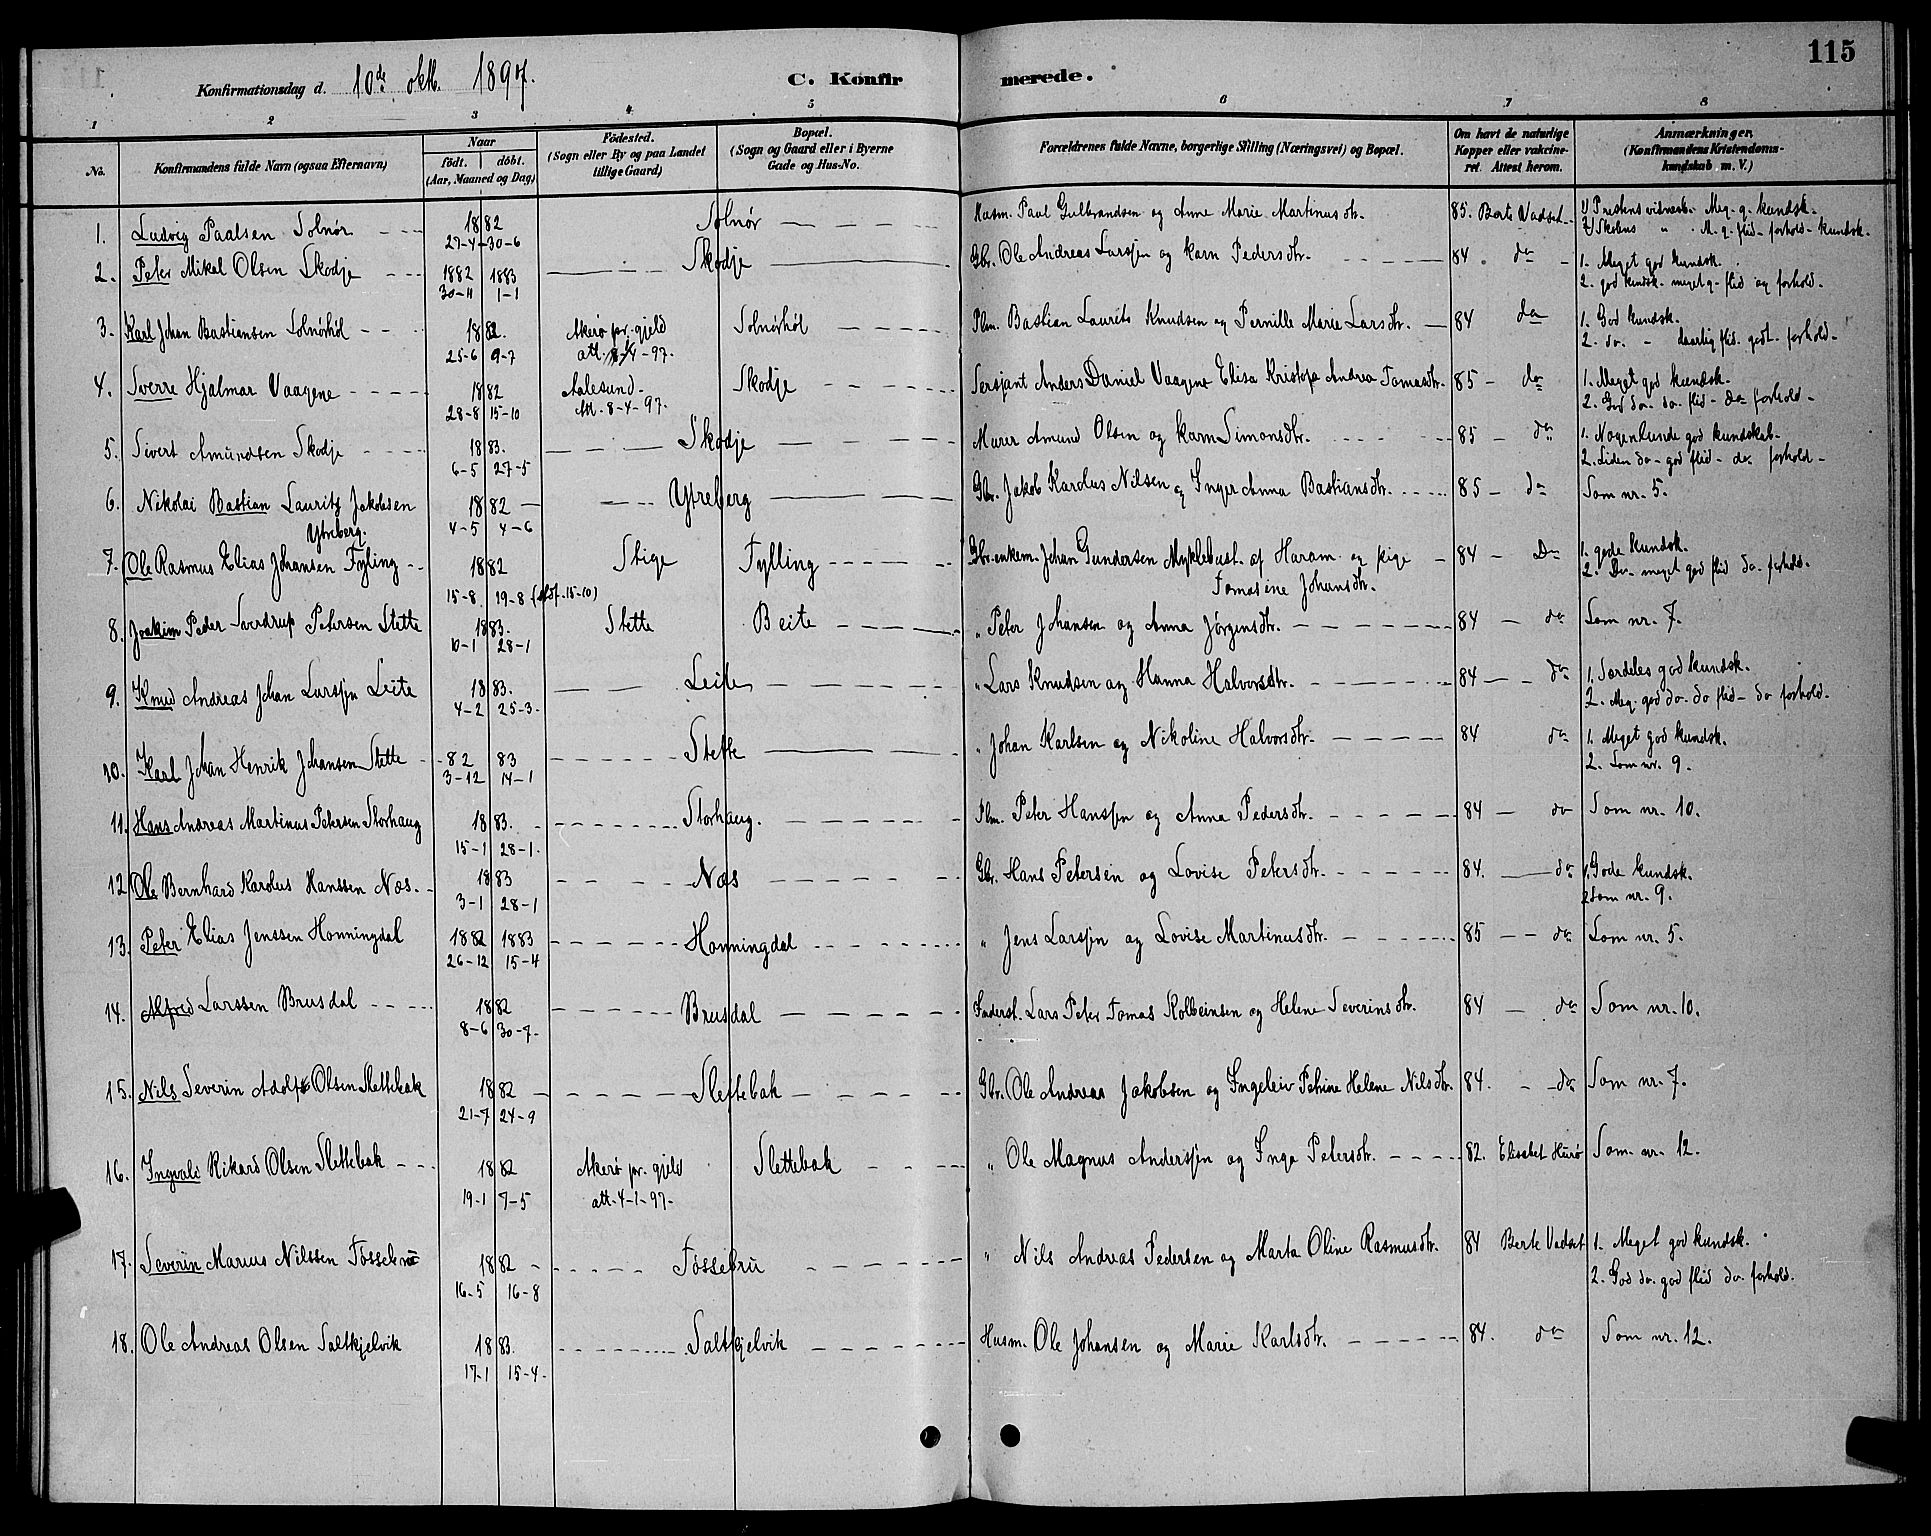 115
Konfirmationsdag d. 10de okt. 1897. C. Konfirmerede.
1 2 3 4 5 6 7 8
No. Konfirmandens fulde Navn (ogsaa Efternavn) Naar født. døbt. (Aar, Maaned og Dag) Födested. (Sogn eller By og paa Landet tillige Gaard) Bopæl. (Sogn og Gaard eller i Byerne Gade og Hus-No. Forældrenes fulde Navne, borgerlige Stilling (Næringsvei) og Bopæl. Om havt de naturlige Kopper eller vakcineret. Attest herom. Anmærkninger. (Konfirmandens Kristendomskundskab m. V.)
1. Ludvig Paalsen Solnør 1882 Solnør Husm. Paul Gulbrandsen og Anne Marie Martinusdtr. 85. Berte Vadset 1) Prestens vidnesb. Meg. g. kundsk.
27-4 30-6 2) Skolens " M. g. flid - forhold - kundsk.
2. Peter Mikal Olsen Skodje 1882 1883 Skodje Gbr. Ole Andreas Larssen og Karn Pedersdtr. 84 do 1. Meget god kundsk.
30-11 1-1 2. god kundsk. meget g. flid og forhold.
3. Karl Johan Bastiansen Solnørhol 1882. Akerø pr. gjeld Solnørhol Plm. Bastian Laurits Knudsen og Pernille Marie Larsdtr. 84 do 1. God kundsk.
25-6 9-7 att. -4-97. 2. do. - daarlig flid. godt forhold
4. Sverre Hjalmar Vaagene 1882 Aalesund Skodje Sersjant Anders Daniel Vaagene Elisa Kristofa Andrea Tomasdtr. 85 - do 1. Meget god kundsk.
28-8 15-10 Att. 8-4-97. 2. God do. do. flid - do forhold
5. Sivert Amundsen Skodje 1883. Skodje Murer Amund Olsen og Karn Simonsdtr. 85 - do 1. Nogenlunde god kundskab.
6-5 27-5 2. Liden do - god flid - do forhold
6. Nikolai Bastian Lauritz Jakobsen Ytreberg. 1882 Ytreberg Gbr. Jakob Karolus Nilsen og Inger Anna Bastiansdtr. 85 - do Som nr. 5.
4-5 4-6
7. Ole Rasmus Elias Johansen Fylling 1882 Stige Fylling Gbr. enkem. Johan Gundersen Myklebust af Haram og pige Tomasine Johansdtr. 84 - Do 1. gode kundsk.
15-8 19-8 (15-10) 2. Do meget god flid do. forhold.
8. Joakim Peder Sverdrup Petersen Stette 1883. Stette Beite " Peter Johansen og Anna Jørgensdtr. 84 - do Som nr. 7.
10-1 28-1
9. Knud Andreas Johan Larssen Leite 1883. Leite " Lars Knudsen og Hanna Halvorsdtr. 84 - do 1. Særdeles god kundsk.
4-2 25-3. 2. Meg. god do. do flid - do forhold.
10. Karl Johan Henrik Johansen Stette 82 83 Stette " Johan Karlsen og Nikoline Halvorsdtr. 84 do 1. Meget god kundsk.
3-12 14-1 2. Som nr. 9.
11. Hans Andreas Martinus Petersen Storhaug 1883. Storhaug. Plm. Peter Hanssen og Anna Pedersdtr. 84 - do Som nr. 10.
15-1 28-1.
12 Ole Bernhard Karolus Hanssen Næs. 1883 Næs Gbr. Hans Petersen og Lovise Petersdtr. 84. do 1. Gode kundsk.
3-1 28-1 2. Som nr. 9.
13. Peter Elias Jenssen Honningdal 1882 1883 Honningdal " Jens Larssen og Lovise Martinusdtr. 85 - do Som nr. 5.
26-12 15-4
14. Alfred Larssen Brusdal 1882 Brusdal Føderst. Lars Peter Tomas Kolbeinsen og Helene Severinsdtr. 84 - do Som nr. 10.
8-6 30-7.
15. Nils Severin Adolf Olsen Slettebak 1882 Slettebak Gbr. Ole Andreas Jakobsen og Ingeleiv Petrine Helene Nilsdtr. 84. - do Som nr. 7.
21-7 24-9
16. Ingvald Rikard Olsen Slettebak 1882 Akerø pr. gjeld Slettebak " Ole Magnus Anderssen og Inga Petersdtr. 82. Elisabet Hurø Som nr. 12.
19-1 7-5 att. 4-1-97.
17. Severin Marius Nilssen Fossebru 1882 Fossebru " Nils Andreas Pedersen og Marta Oline Rasmusdtr. 84 Berte Vadset 1. Meget god kundsk.
16-5 16-8 2. God do. god flid do. forhold.
18. Ole Andreas Olsen Saltkjelvik 1883. Saltkjelvik Husm. Ole Johansen og Marie Karlsdtr. 84. do Som nr. 12.
17-1 15-4.